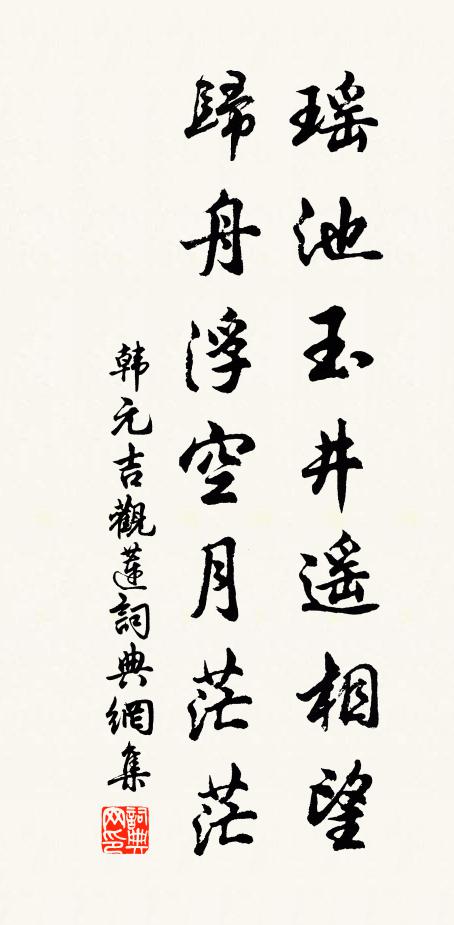 瑶池玉井遥相望
歸舟浮空月茫茫
韩元吉觀莲詞典網集
詞典网印